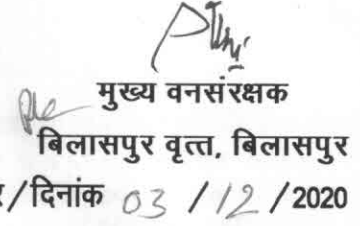 मुख्य वनसंरक्षक
बिलासपुर वृत्त, बिलासपुर
/दिनांक 03 /12 /2020